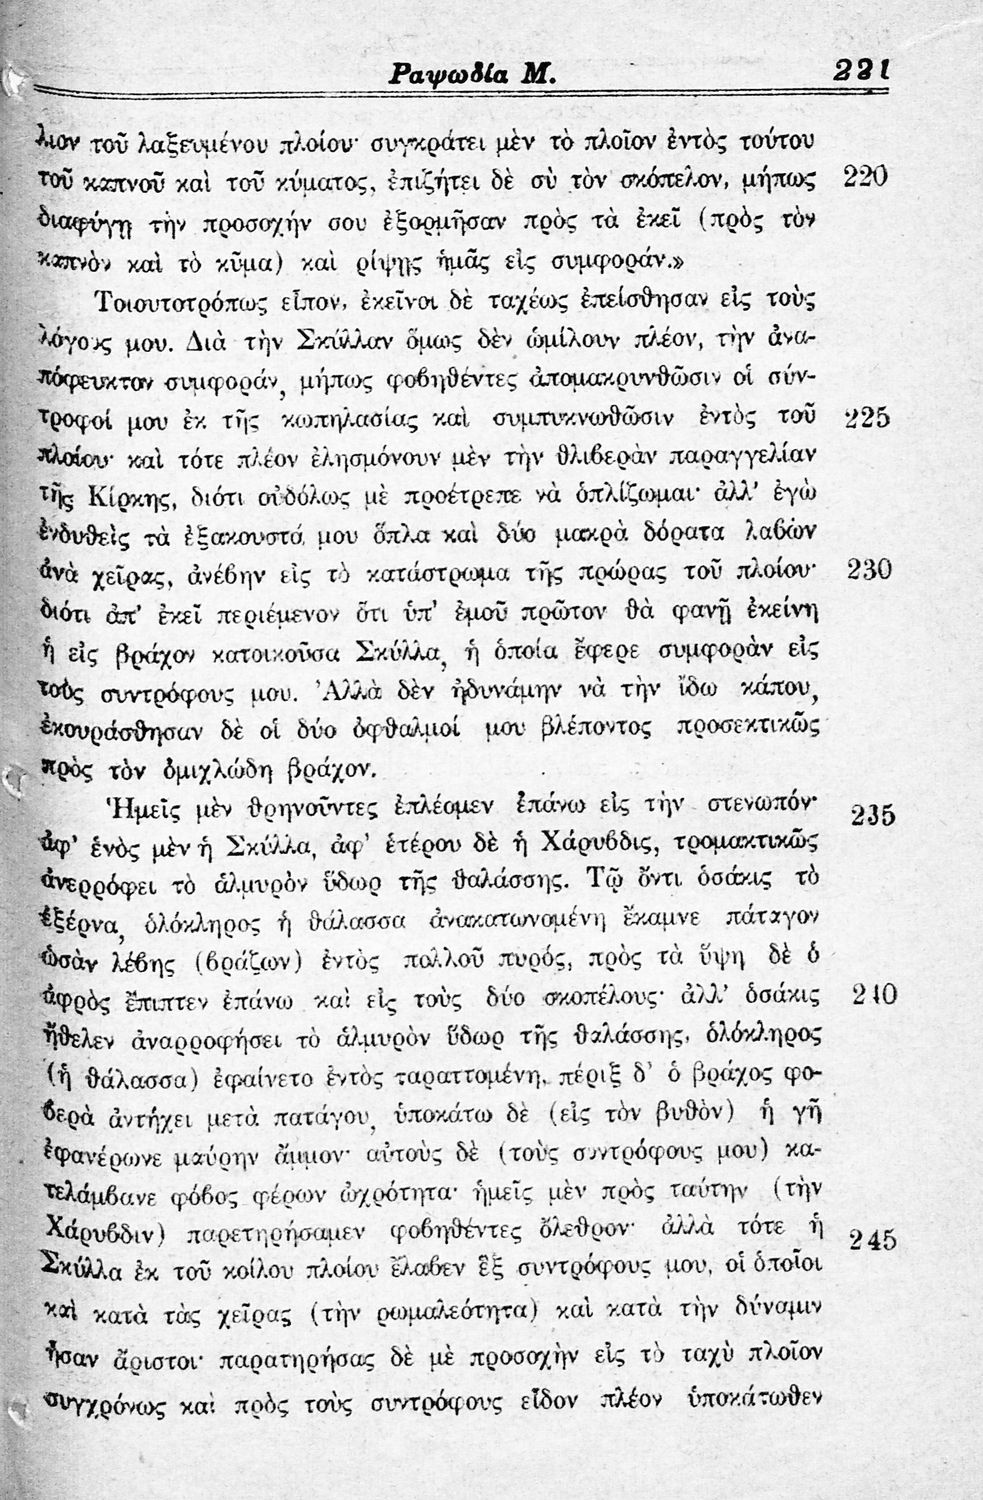 Ραψωδία Μ. 221
λιον τοῦ λαξευμένου πλοίου· συγκράτει μὲν τὸ πλοῖον ἐντὸς τούτου
τοῦ καπνοῦ καὶ τοῦ κύματος, ἐπιζήτει δὲ σὺ τὸν σκόπελον, μήπως 220
διαφύγῃ τὴν προσοχήν σου ἐξορμῆσαν πρὸς τὰ ἐκεῖ (πρὸς τὸν
καπνὸν καὶ τὸ κῦμα) καὶ ρίψῃς ἡμᾶς εἰς συμφοράν.»
Τοιουτοτρόπως εἶπον, ἐκεῖνοι δὲ ταχέως ἐπείσθησαν εἰς τοὺς
λόγους μου. Διὰ τὴν Σκύλλαν ὅμως δὲν ὡμίλουν πλέον, τὴν ἀνα-
πόφευκτον συμφοράν, μήπως φοβηθέντες ἀπομακρυνθῶσιν οἱ σύν-
τροφοί μου ἐκ τῆς κωπηλασίας καὶ συμπυκνωθῶσιν ἐντὸς τοῦ 225
πλοίου· καὶ τότε πλέον ἐλησμόνουν μὲν τὴν θλιβερὰν παραγγελίαν
τῆς Κίρκης, διότι οὐδόλως μὲ προέτρεπε νὰ ὁπλίζωμαι· ἀλλ' ἐγὼ
ἐνδυθεὶς τὰ ἐξακουστά μου ὅπλα καὶ δύο μακρὰ δόρατα λαβὼν
ἀνὰ χεῖρας, ἀνέβην εἰς τὸ κατάστρωμα τῆς πρώρας τοῦ πλοίου· 230
διότι ἀπ' ἐκεῖ περιέμενον ὅτι ὑπ' ἐμοῦ πρῶτον θὰ φανῇ ἐκείνη
ἡ εἰς βράχον κατοικοῦσα Σκύλλα, ἡ ὁποία ἔφερε συμφορὰν εἰς
τοὺς συντρόφους μου. Ἀλλὰ δὲν ἠδυνάμην νὰ τὴν ἴδω κάπου,
ἐκουράσθησαν δὲ οἱ δύο ὀφθαλμοί μου βλέποντος προσεκτικῶς
πρὸς τὸν ὁμιχλώδη βράχον.
Ἡμεῖς μὲν θρηνοῦντες ἐπλέομεν ἐπάνω εἰς τὴν στενωπόν· 235
ἀφ' ἑνὸς μὲν ἡ Σκύλλα, ἀφ' ἑτέρου δὲ ἡ Χάρυβδις, τρομακτικῶς
ἀνερρόφει τὸ ἁλμυρὸν ὕδωρ τῆς θαλάσσης. Τῷ ὄντι ὁσάκις τὸ
ἐξέρνα, ὁλόκληρος ἡ θάλασσα ἀνακατωνομένη ἔκαμνε πάταγον
ὡσὰν λέβης (βράζων) ἐντὸς πολλοῦ πυρός, πρὸς τὰ ὕψη δὲ ὁ
ἀφρὸς ἔπιπτεν ἐπάνω καὶ εἰς τοὺς δύο σκοπέλους· ἀλλ' ὁσάκις 240
ἤθελεν ἀναρροφήσει τὸ ἁλμυρὸν ὕδωρ τῆς θαλάσσης, ὁλόκληρος
(ἡ θάλασσα) ἐφαίνετο ἐντὸς ταραττομένη, πέριξ δ' ὁ βράχος φο-
βερὰ ἀντήχει μετὰ πατάγου, ὑποκάτω δὲ (εἰς τὸν βυθὸν) ἡ γῆ
ἐφανέρωνε μαύρην ἄμμον· αὐτοὺς δὲ (τοὺς συντρόφους μου) κα-
τελάμβανε φόβος φέρων ὠχρότητα· ἡμεῖς μὲν πρὸς ταύτην (τὴν
Χάρυβδιν) παρετηρήσαμεν φοβηθέντες ὄλεθρον· ἀλλὰ τότε ἡ 245
Σκύλλα ἐκ τοῦ κοίλου πλοίου ἔλαβεν ἓξ συντρόφους μου, οἱ ὁποῖοι
καὶ κατὰ τὰς χεῖρας (τὴν ρωμαλεότητα) καὶ κατὰ τὴν δύναμιν
ἦσαν ἄριστοι· παρατηρήσας δὲ μὲ προσοχὴν εἰς τὸ ταχὺ πλοῖον
συγχρόνως καὶ πρὸς τοὺς συντρόφους εἶδον πλέον ὑποκάτωθεν